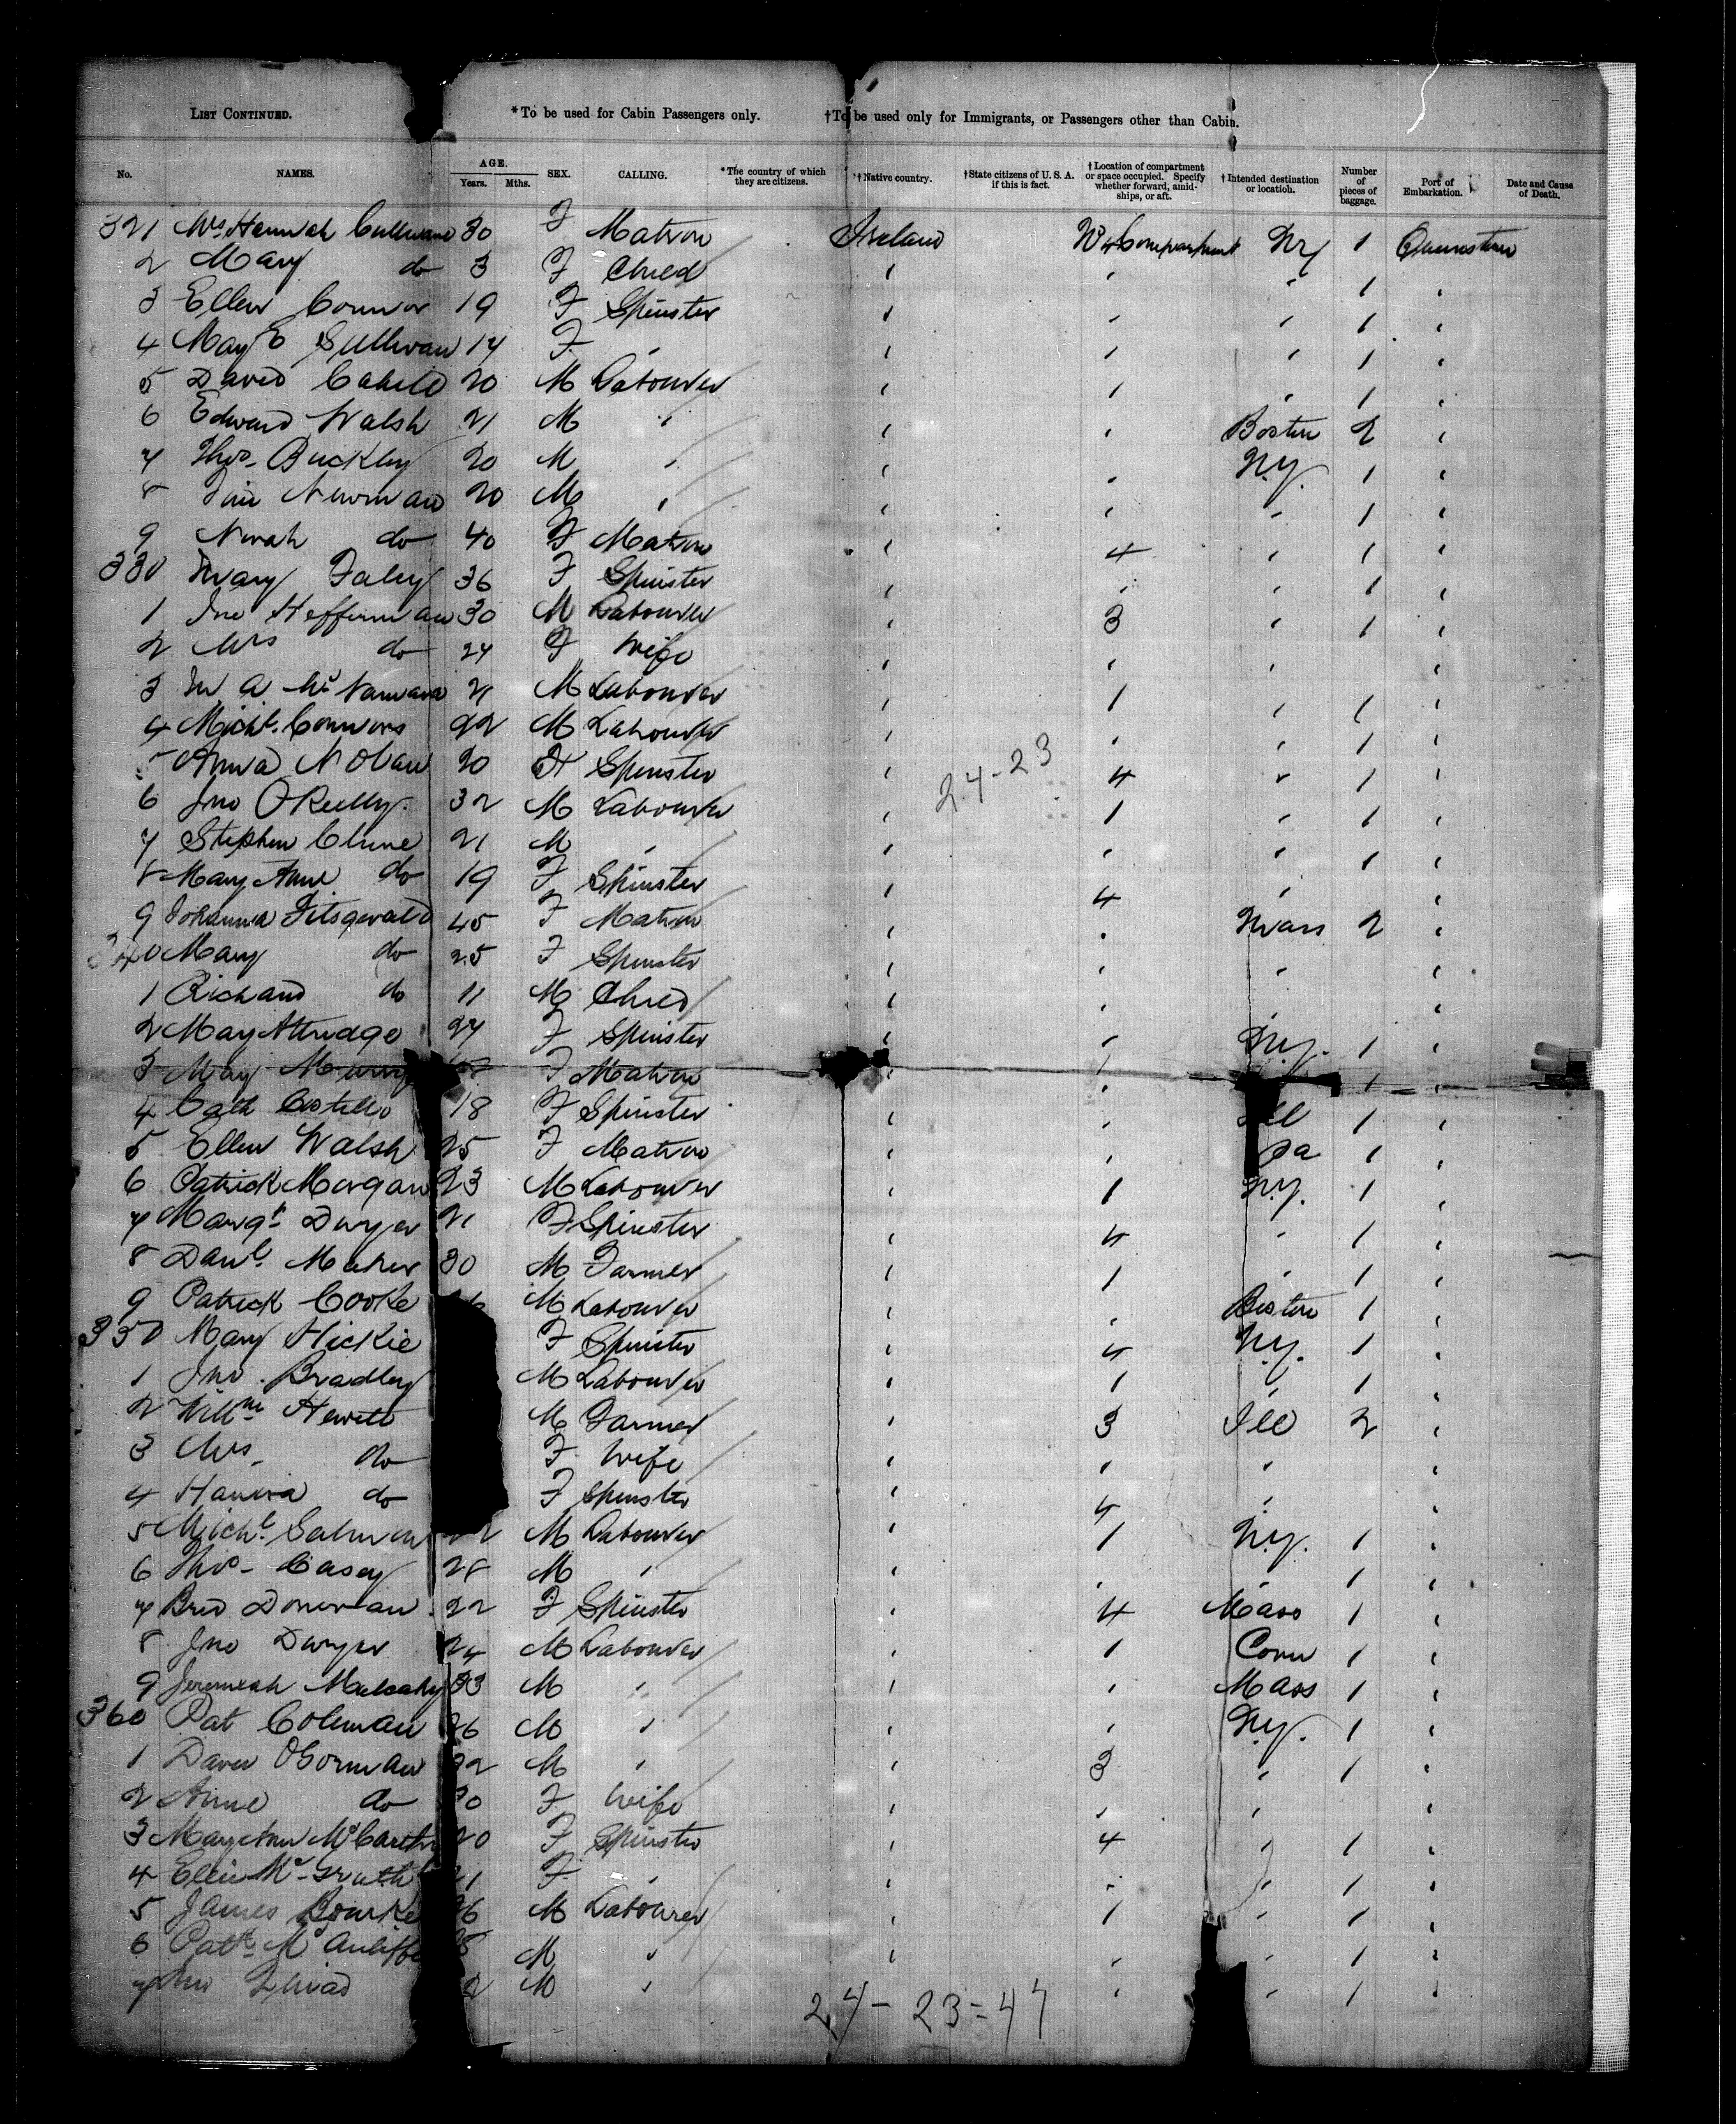 LIST CONTINUED. *To be used for Cabin Passengers only. †To be used only for Immigrants, or Passengers other than Cabin.
No. NAMES. AGE. Years. Mths. SEX. CALLING. *The country of which they are citizens. *†Native country. †State citizens of U. S. A. if this is fact. †Location of compartment or space occupied. Specify whether forward, amidships, or aft. †Intended destination or location. Number of pieces of baggage. Port of Embarkation. Date and Cause of Death.
321 Mrs Hannah 30 F Matron Ireland Compartment NY 1 Queenstown
2 Mary do 3 F Child " " " 1 "
3 Ellen Connor 19 F Spinster " " " 1 "
4 May E Sullivan 17 F " " " " 1 "
5 David Cahill 20 M Labourer " 1 " 1 "
6 Edward Walsh 21 M " " " Boston 2 "
7 Thos. Buckley 20 M " " " N.Y. 1 "
8 Newman 20 M " " " " 1 "
9 Norah do 40 F Matron " 4 " 1 "
330 Mary Faley 36 F Spinster " " " 1 "
1 Jno Heffernan 30 M Labourer " 3 " 1 "
2 Mrs do 24 F Wife " " " "
3 M A McNamara 21 M Labourer " 1 " 1 "
4 Michl. Connors 22 M Labourer " " " 1 "
5 Anna Nolan 20 F Spinster " 24-23 4 " 1 "
6 Jno O'Reilly 32 M Labourer " 1 " 1 "
7 Stephen Clune 21 M " " " " 1 "
8 Mary Anne do 19 F Spinster " 4 " "
9 Johanna Fitzgerald 45 F Matron " " Mass 2 "
340 Mary do 25 F Spinster " " " "
1 Richard do 11 M Child " " "
2 May Attridge 27 F Spinster " " N.Y. 1 "
3 May F Matron " " 1 "
4 Cath Costello 18 F Spinster " " Ill 1 "
5 Ellen Walsh 25 F Matron " " Pa 1 "
6 Patrick Morgan 23 M Labourer " 1 N.Y. 1 "
7 Margt. Dwyer 21 F Spinster " 4 " 1 "
8 Danl. Maher 30 M Farmer " 1 " 1 "
9 Patrick Cooke M Labourer " " Boston 1 "
350 Mary Hickie F Spinster " 4 N.Y. 1 "
1 Jno. Bradley M Labourer " 1 " 1 "
2 Willm Hewitt M Farmer " 3 Ill 2 "
3 Mrs. do F Wife " " " "
4 Hanna do F Spinster " 4 " "
5 Michl. M Labourer " 1 N.Y. 1 "
6 Thos. Casey 28 M " " " " 1 "
7 Brid Donovan 22 F Spinster " 4 Mass 1 "
8 Jno Dwyer 24 M Labourer " 1 Conn 1 "
9 Jeremiah Mulcahy 33 M " " " Mass 1 "
360 Pat Coleman 26 M " " " N.Y. 1 "
1 David O'Gorman 32 M " " 3 " 1 "
2 Anne do 30 F Wife " " " "
3 Mary Ann McCarthy 20 F Spinster " 4 " 1 "
4 Ellen McGrath 21 F " " " " 1 "
5 James Bourke 26 M Labourer " 1 " 1 "
6 Patk. McAuliffe M " " " " 1 "
7 Jno M " " " 1 "
24-23=47